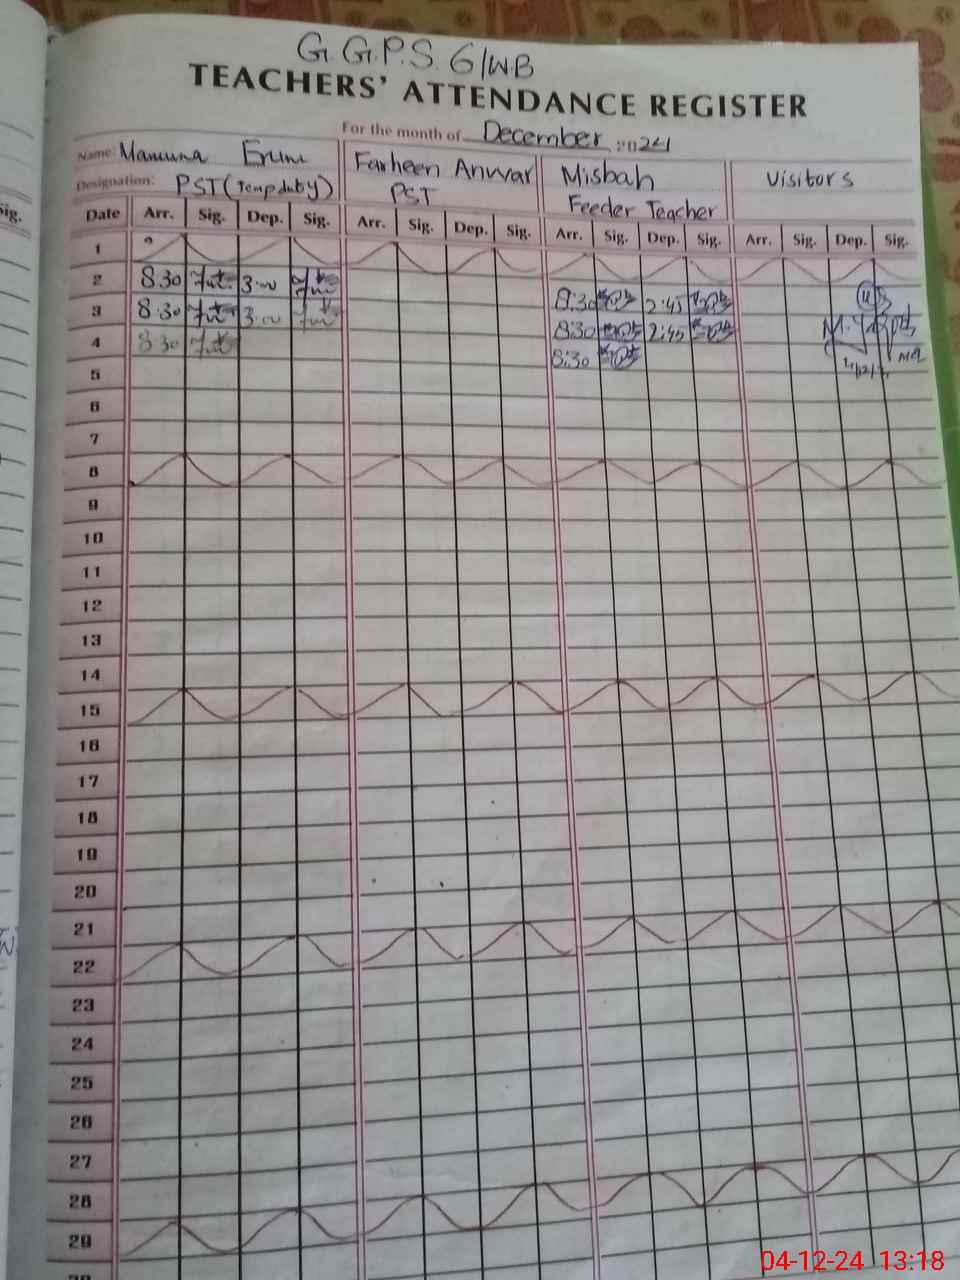 G.G.P.S. 6/WB
TEACHERS' ATTENDANCE REGISTER
For the month of December, 2024
Name: Mamuna Erum Farheen Anwar Misbah Visitors
Designation: PST (Temp duty) PST Feeder Teacher
Date Arr. Sig. Dep. Sig. Arr. Sig. Dep. Sig. Arr. Sig. Dep. Sig. Arr. Sig. Dep. Sig.
Sig.
1
2 8.30 3.00 8:30 2:45
3 8.30 3.00 8:30 2:45
4 8.30 8:30
5
6
7
8
9
10
11
12
13
14
15
16
17
18
19
20
21
22
23
24
25
26
27
28
29
04-12-24 13:18